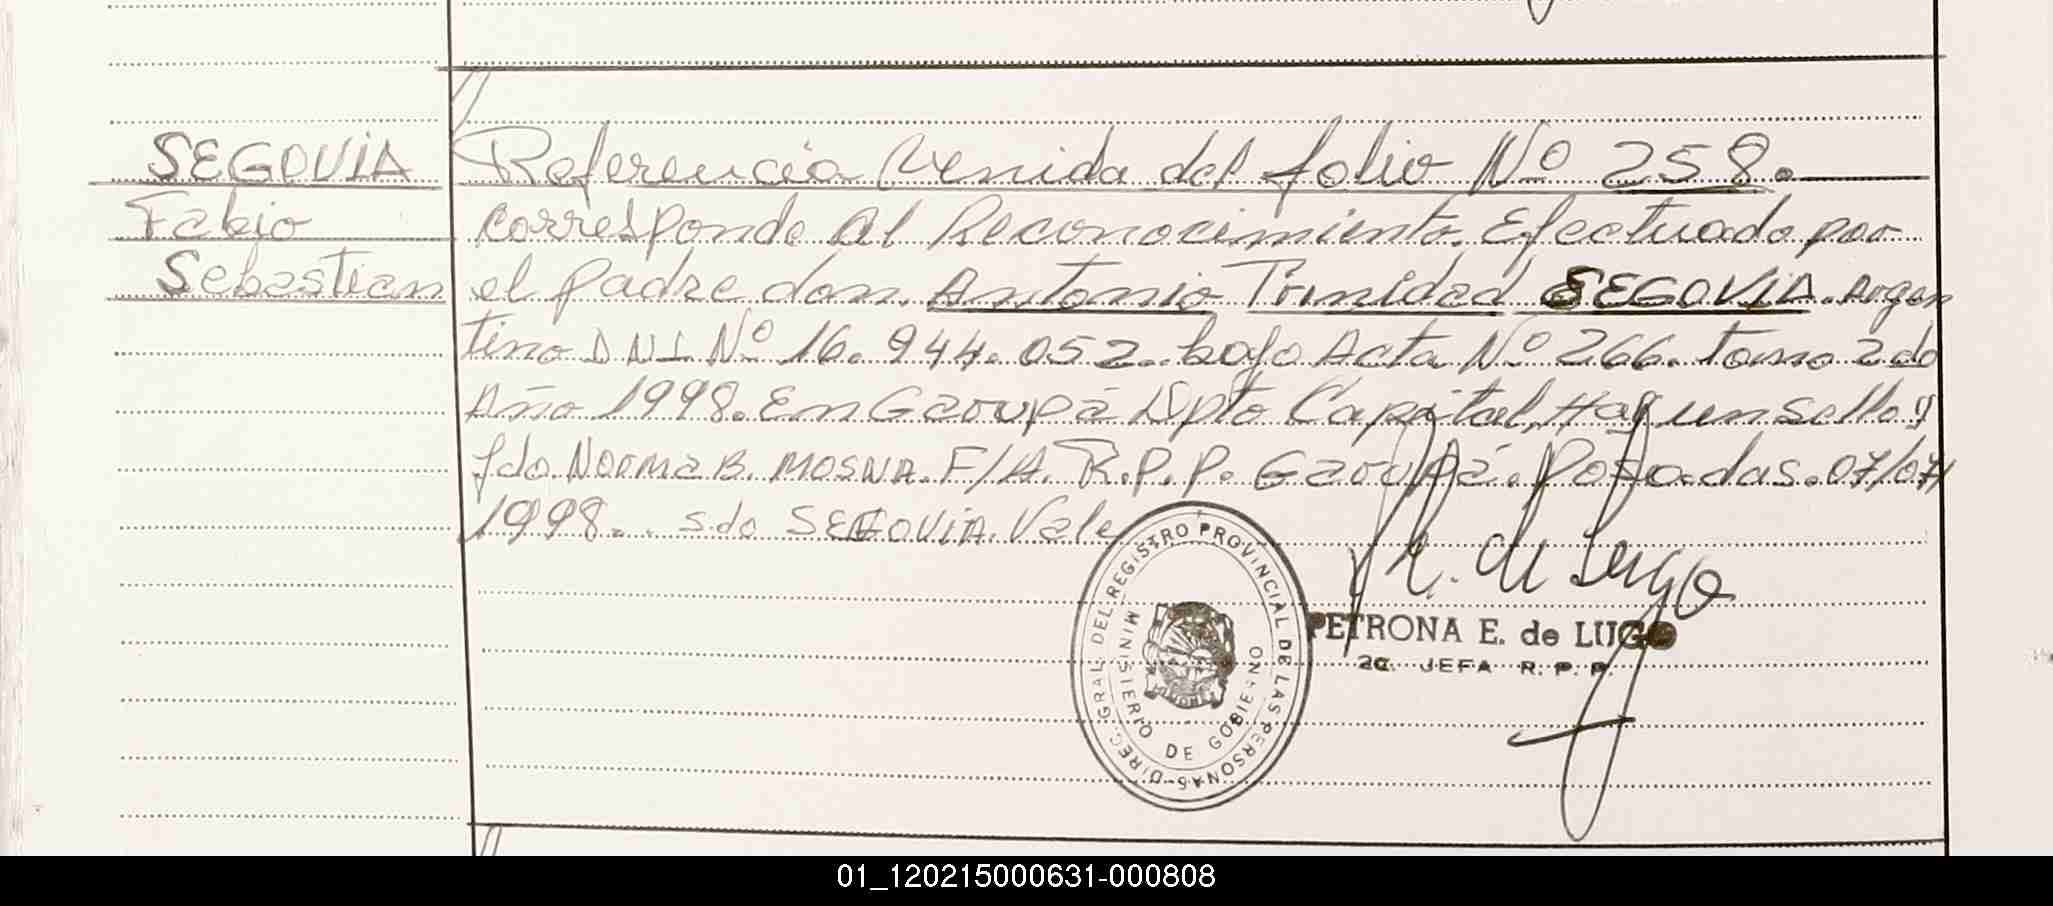 SEGOVIA
Fabio
Sebastian
Referencia Venida del folio Nº 258.
corresponde al Reconocimiento. Efectuado por
el padre don. Antonio Trinidad SEGOVIA. Argen
tino DNI Nº 16.944.052. bajo Acta Nº 266. tomo 2do
Año 1998. En Garupá Dpto Capital, Hay un sello y
fdo Norma B. MOSNA. F/A. R.P.P. Garupá. Posadas. 07/07/
1998. s.do SEGOVIA. Vale
DIREC. GRAL. DEL REGISTRO PROVINCIAL DE LAS PERSONAS
MINISTERIO DE GOBIERNO
P. E. de Lugo
PETRONA E. de LUGO
2a. JEFA R. P. P.
01_120215000631-000808